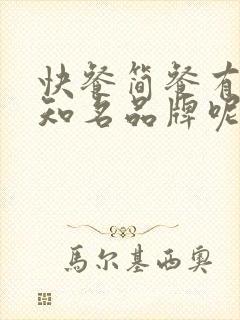 快餐简餐有
知名品牌呢
馬尔基西奥